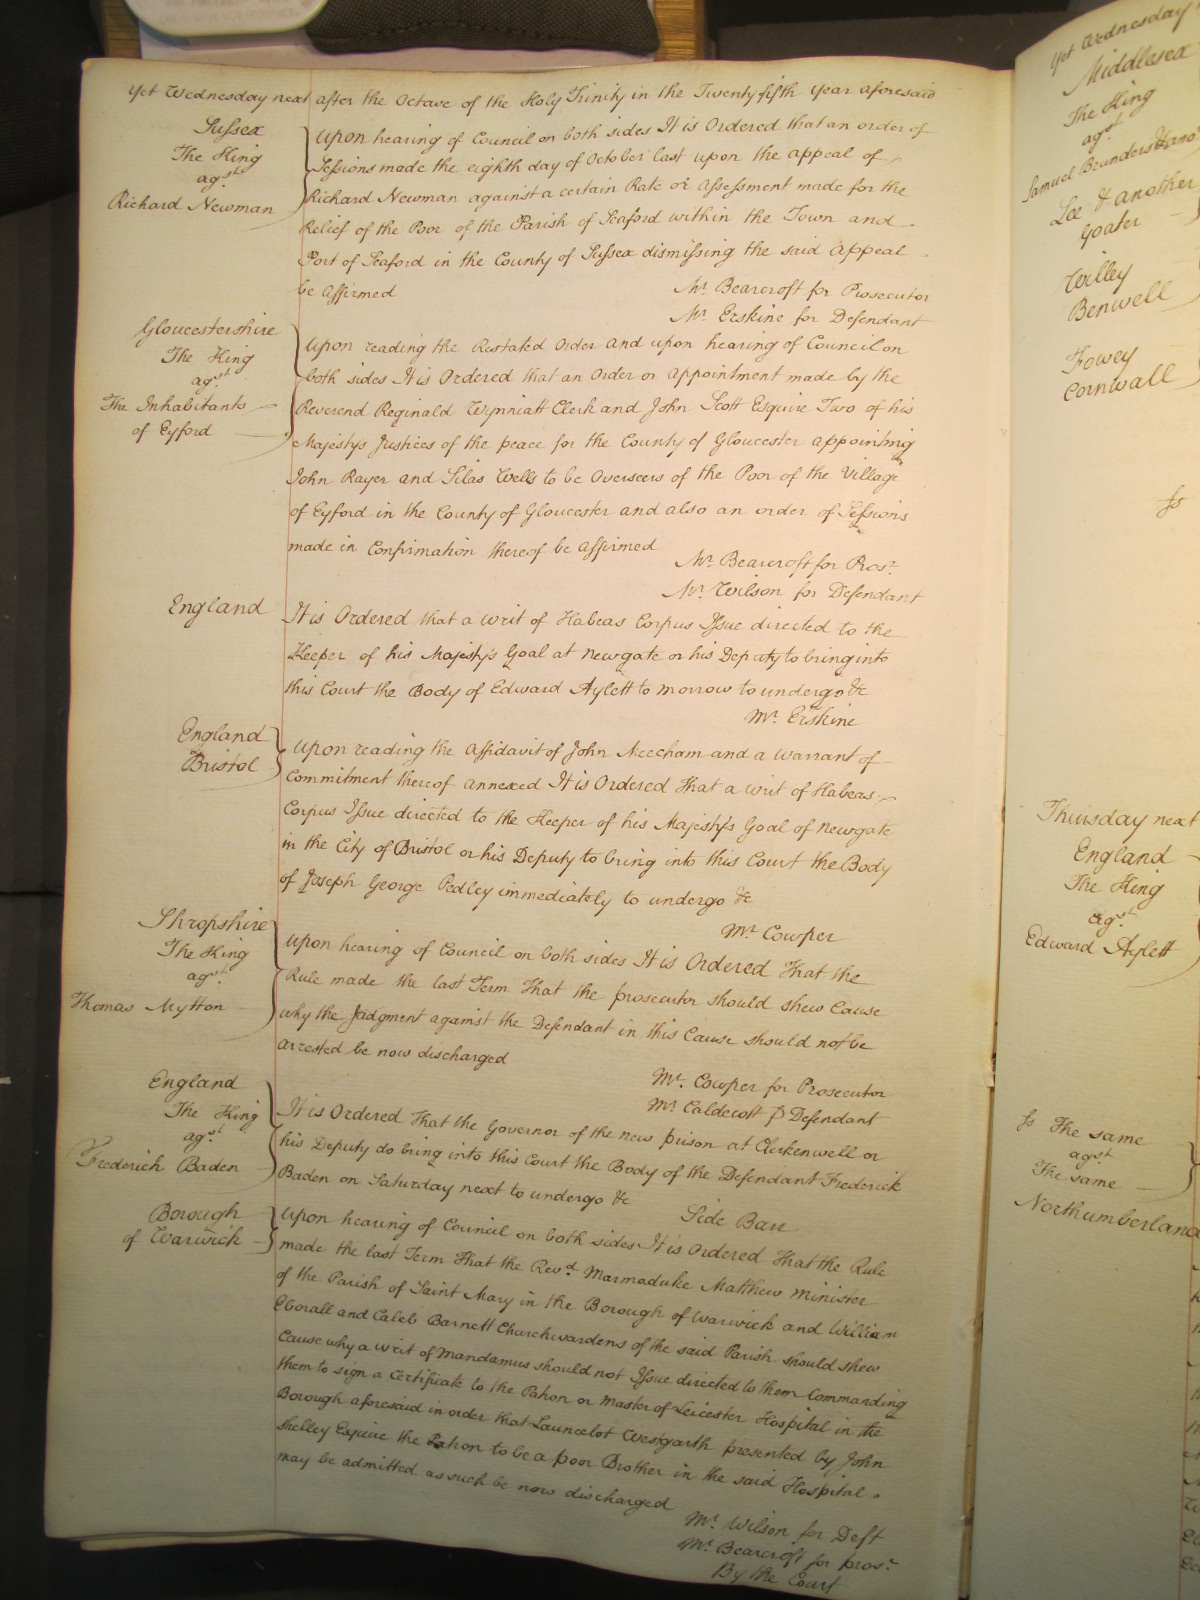 Yet Wednesday next after the Octave of the Holy Trinity in the Twenty fifth year aforesaid
Sussex
The King
agst
Richard Newman
Upon hearing of Council on both sides It is Ordered that an order of
Sessions made the eighth day of October last upon the appeal of
Richard Newman against a certain Rate or Assessment made for the
Relief of the Poor of the Parish of Seaford within the Town and
Port of Seaford in the County of Sussex dismissing the said Appeal
be affirmed
Mr. Bearcroft for Prosecutor
Mr. Erskine for Defendant
Gloucestershire
The King
agst
The Inhabitants
of Eyford
Upon reading the Restated Order and upon hearing of Council on
both sides It is Ordered that an Order or appointment made by the
Reverend Reginald Wynniatt Clerk and John Scott Esquire Two of his
Majestys Justices of the peace for the County of Gloucester appointing
John Rayer and Silas Wells to be Overseers of the Poor of the Village
of Eyford in the County of Gloucester and also an order of Sessions
made in Confirmation thereof be affirmed
Mr. Bearcroft for Prosr.
Mr. Wilson for Defendant
England
It is Ordered that a writ of Habeas Corpus Issue directed to the
Keeper of his Majesty's Goal at Newgate or his Deputy to bring into
this Court the Body of Edward Aylett to morrow to undergo &c
Mr. Erskine
England
Bristol
Upon reading the Affidavit of John Neecham and a Warrant of
Commitment thereof annexed It is Ordered That a writ of Habeas
Corpus Issue directed to the Keeper of his Majestys Goal of Newgate
in the City of Bristol or his Deputy to bring into this Court the Body
of Joseph George Pedley immediately to undergo &c
Mr. Cowper
Shropshire
The King
agst
Thomas Mytton
Upon hearing of Council on both sides It is Ordered That the
Rule made the last Term That the prosecutor should shew Cause
why the Judgment against the Defendant in this Cause should not be
arrested be now discharged
Mr. Cowper for Prosecutor
Mr. Caldecott p Defendant
England
The King
agst
Frederick Baden
It is Ordered That the Governor of the new prison at Clerkenwell or
his Deputy do bring into this Court the Body of the Defendant Frederick
Baden on Saturday next to undergo &c
Side Barr
Borough
of Warwick
Upon hearing of Council on both sides It is Ordered That the Rule
made the last Term That the Revd. Marmaduke Matthew Minister
of the Parish of Saint Mary in the Borough of Warwick and William
Eborall and Caleb Barnett Churchwardens of the said Parish should shew
Cause why a writ of Mandamus should not Issue directed to them Commanding
them to sign a Certificate to the Patron or Master of Leicester Hospital in the
Borough aforesaid in order that Launcelot Westgarth presented by John
Shelley Esquire the Patron to be a poor Brother in the said Hospital
may be admitted as such be now discharged
Mr. Wilson for Deft
Mr. Bearcroft for prosr.
By the Court
Yet Wednesday
Middlesex
The King
agst
Samuel Beunders & ano
Lee & another
Goater
Willey
Benwell
Fowey
Cornwall
Thursday next
England
The King
agst
Edward Aylett
The same
agst
The same
Northumberland